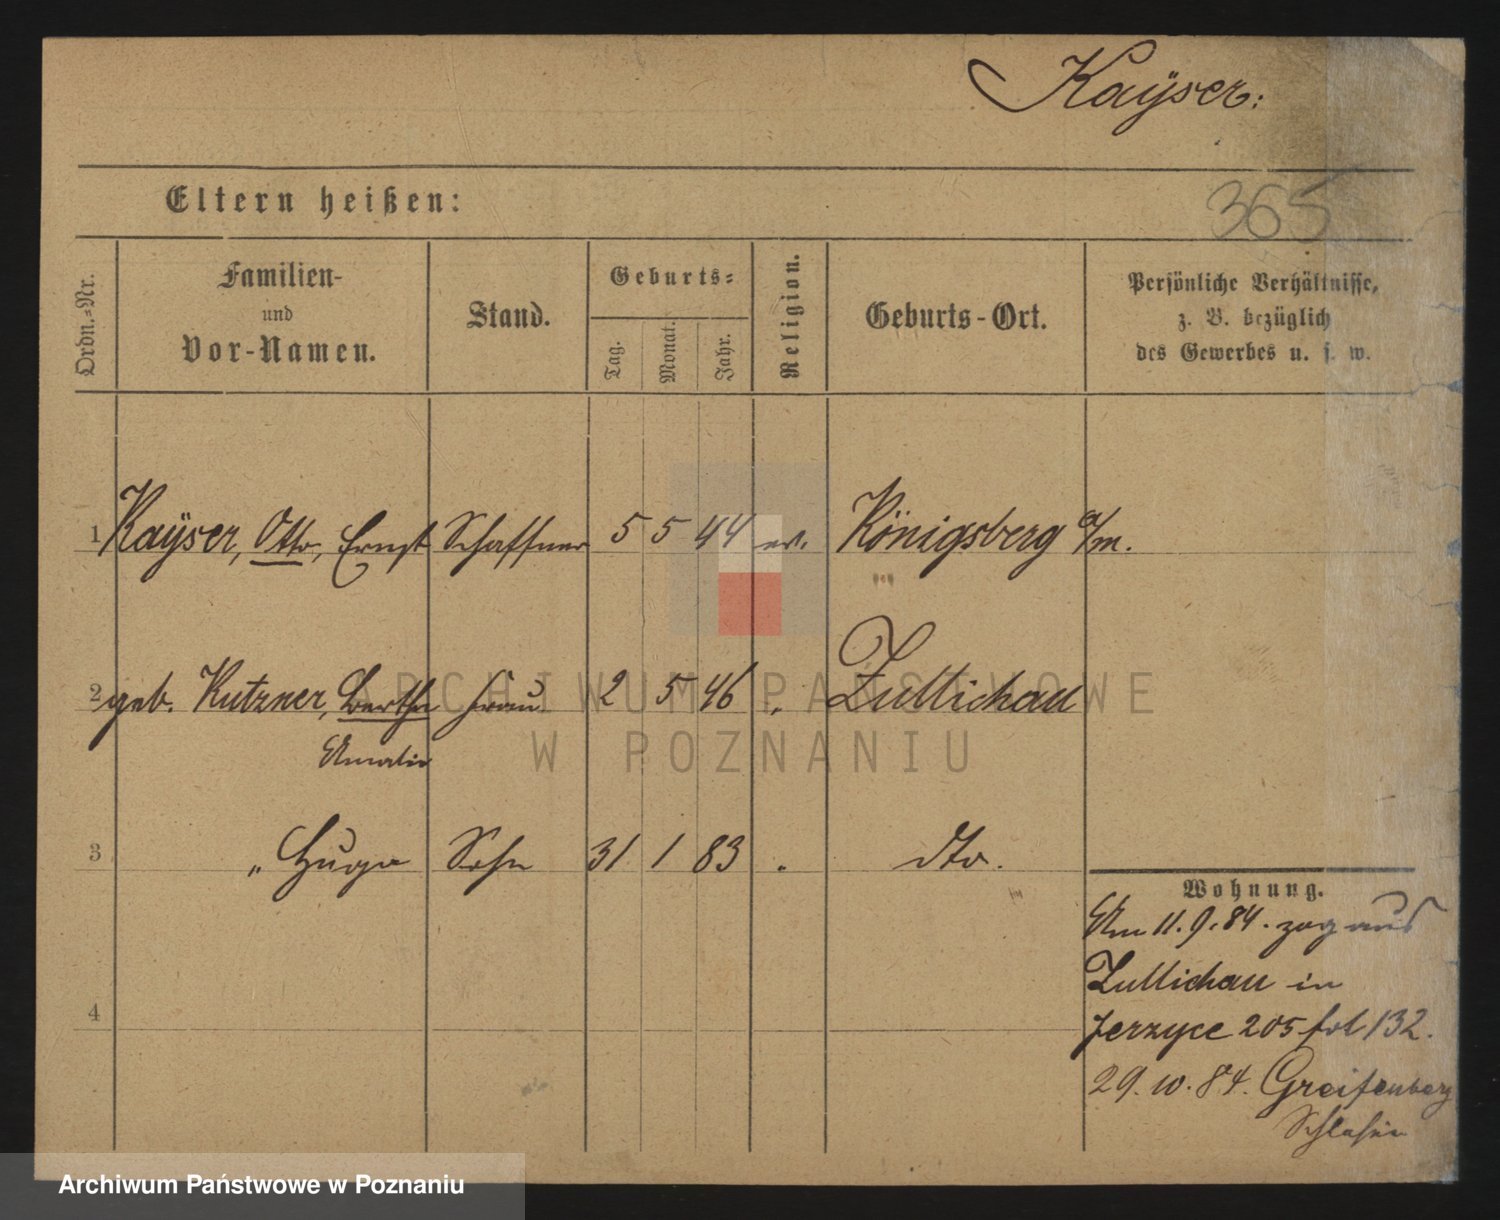 Kaÿser:
Eltern heißen:
365
Ordn.-Nr.
Familien-
und
Vor-Namen.
Stand.
Geburts-
Tag.
Monat.
Jahr.
Religion.
Geburts-Ort.
Persönliche Verhältnisse,
z. B. bezüglich
des Gewerbes u. s. w.
1 Kaÿser, Otto, Ernst Schaffner 5 5 44 ev. Königsberg a/m.
2 geb. Kutzner, Bertha Frau 2 5 46 " Züllichau
Amalie
3 " Hugo Sohn 31 1 83 " dto.
Wohnung.
Am 11.9.84. zog aus
Züllichau in
Jerzyce 205 fol 132.
4
29.10.84. Greifenberg
Schlesien
ARCHIWUM PAŃSTWOWE
W POZNANIU
Archiwum Państwowe w Poznaniu